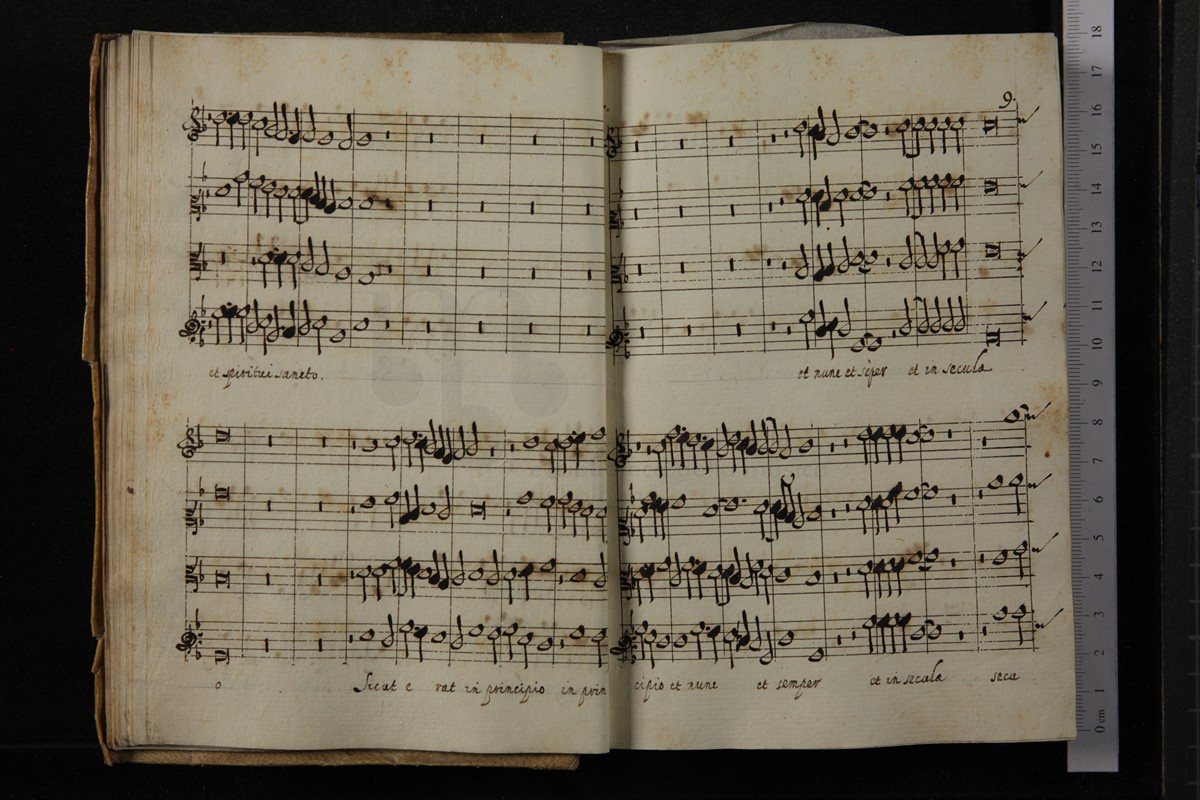 9
et spiritui sancto. et nunc et sēper et in secula
o Sicut e rat in principio in prin cipio et nunc et semper et in secula secu
0 cm 1 2 3 4 5 6 7 8 9 10 11 12 13 14 15 16 17 18